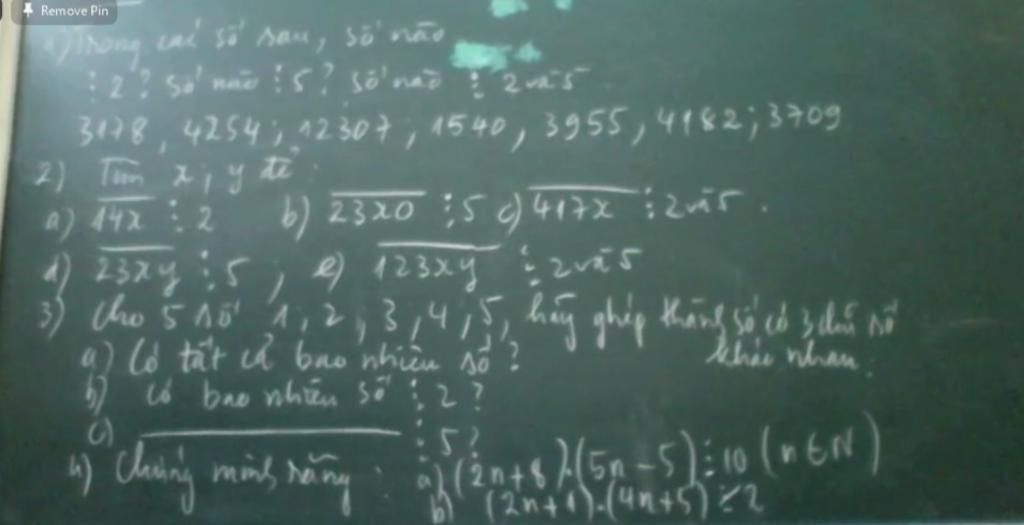 Remove Pin
1) Trong các số sau, số nào
⋮ 2? số nào ⋮ 5? số nào ⋮ 2 và 5
3178, 4254; 12307, 1540, 3955, 4182; 3709
2) Tìm x, y để:
a) 14x ⋮ 2 b) 23x0 ⋮ 5 c) 417x ⋮ 2 và 5.
d) 23xy ⋮ 5, e) 123xy ⋮ 2 và 5
3) Cho 5 số 1, 2, 3, 4, 5, hãy ghép thành số có 3 chữ số
khác nhau.
a) Có tất cả bao nhiêu số?
b) Có bao nhiêu số ⋮ 2?
c) ⋮ 5?
4) Chứng minh rằng: a) (2n+8).(5n-5) ⋮ 10 (n ∈ N)
b) (2n+1).(4n+5) ⋮̸ 2